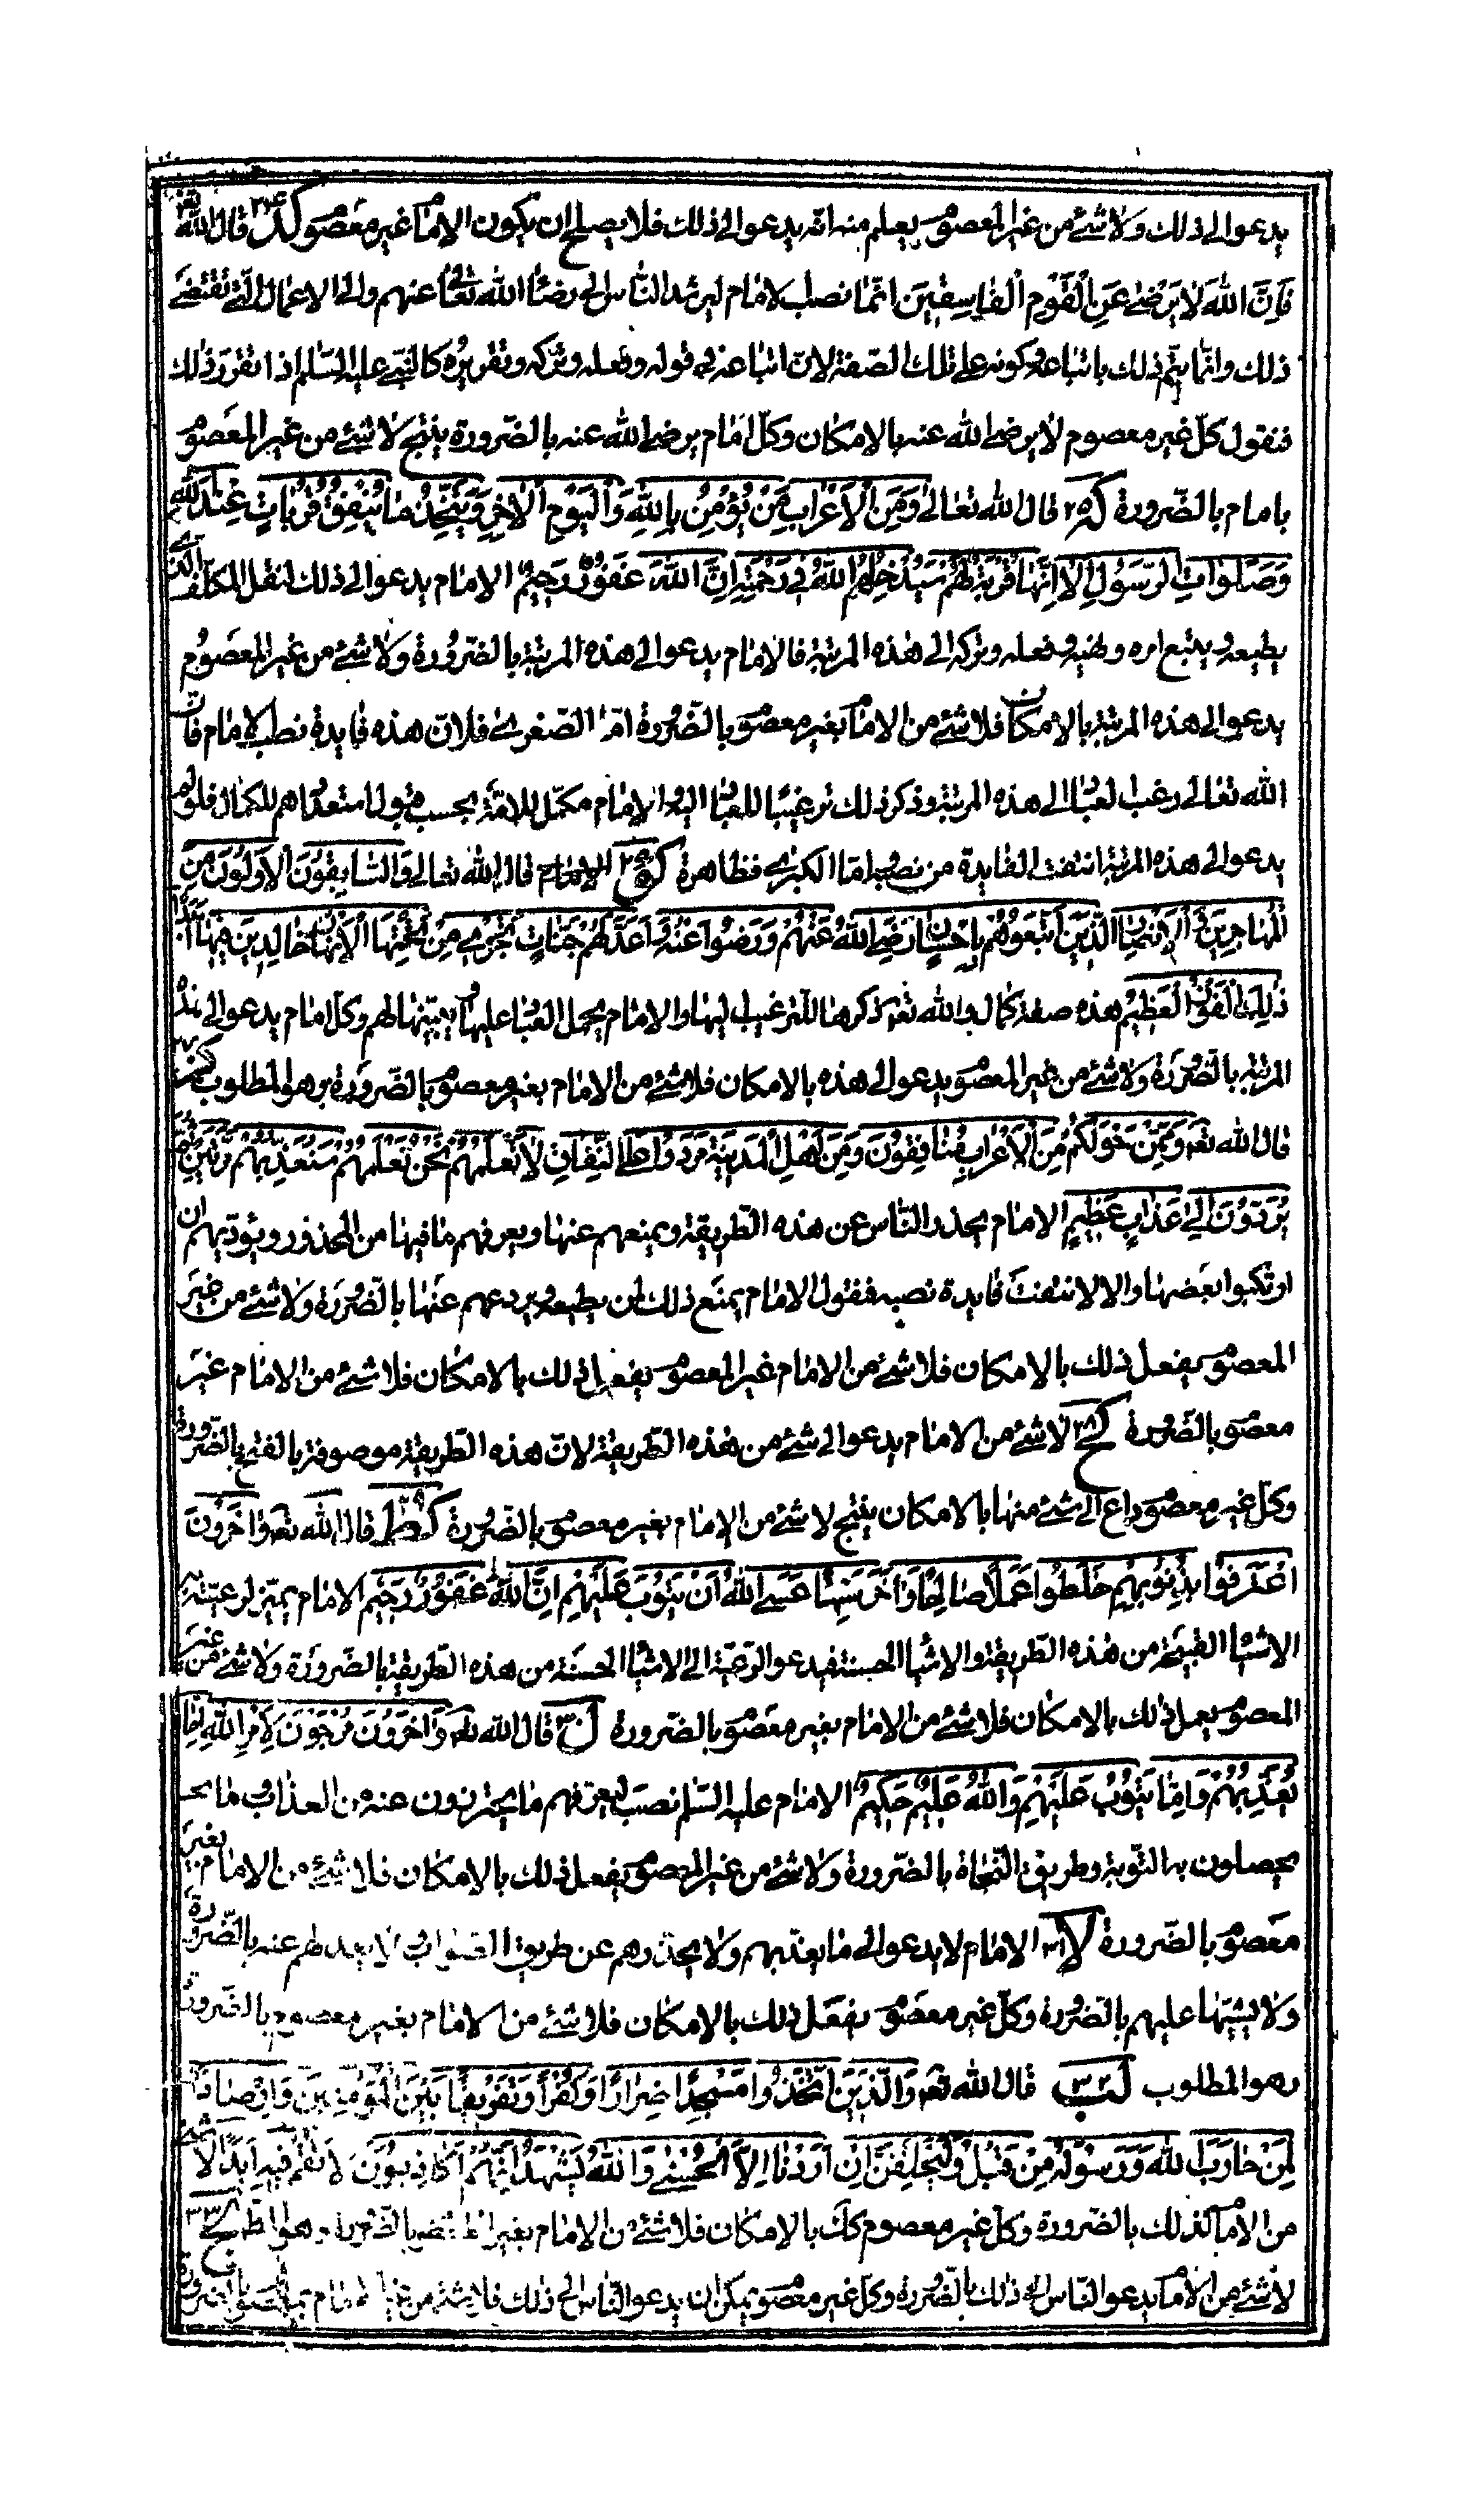 يدعوا الى ذلك ولا شئ من غير المعصوم يعلم منه انه يدعوا الى ذلك فلا يصلح ان يكون الامام غير معصوم كد ٢٤ قال الله تعالى
فَاِنَّ اللهَ لا يَرْضىٰ عَنِ الْقَوْمِ الْفاسِقينَ انّما نصب الامام ليرشد الناس الى رضاء الله تعالى عنهم والى الاعمال الّتى تقتضى
ذلك وانّما يتمّ ذلك باتباعه وكونه على تلك الصّفة لانّ اتباعه فى قوله وفعله وتركه وتقريره كالنّبى عليه السّلم اذا تقرّر ذلك
فنقول كلّ غير معصوم لا يرضى الله عنه بالامكان وكلّ امام يرضى الله عنه بالضّرورة ينتج لا شئ من غير المعصوم
بامام بالضّرورة كه ٢٥ قال الله تعالى وَمِنَ الْاَعْرابِ مَنْ يُؤْمِنُ بِاللهِ وَالْيَوْمِ الْاخِرِ وَيَتَّخِذُ ما يُنْفِقُ قُرُباتٍ عِنْدَ اللهِ
وَصَلَواتِ الرَّسُولِ اَلا اِنَّها قُرْبَةٌ لَهُمْ سَيُدْخِلُهُمُ اللهُ فى رَحْمَتِهِ اِنَّ اللهَ غَفُورٌ رَحيمٌ الامام يدعوا الى ذلك لنقل المكلّف الّذى
يطيعه ويتبع امره ونهيه وفعله وتركه الى هذه المرتبة فالامام يدعوا الى هذه المرتبة بالضّرورة ولا شئ من غير المعصوم
يدعوا الى هذه المرتبة بالامكان فلا شئ من الامام بغير معصوم بالضّرورة امّا الصّغرى فلانّ هذه فايدة نصب الامام فانّ
الله تعالى رغب العباد الى هذه المرتبة وذكر ذلك ترغيبا للعباد اليه والامام مكمّل للامّة بحسب قبول استعدادهم للكمال فلو لم
يدعوا الى هذه المرتبة انتفت الفايدة من نصبه امّا الكبرى فظاهرة كو ٢٦ قال الله تعالى وَالسّابِقُونَ الْاَوَّلُونَ مِنَ
الْمُهاجِرينَ وَالْاَنْصارِ وَالَّذينَ اتَّبَعُوهُمْ بِاِحْسانٍ رَضِىَ اللهُ عَنْهُمْ وَرَضُوا عَنْهُ وَاَعَدَّ لَهُمْ جَنّاتٍ تَجْرى مِنْ تَحْتِهَا الْاَنْهارُ خالِدينَ فيها اَبَدًا
ذلِكَ الْفَوْزُ الْعَظيمُ هذه صفة كمال والله تعه ذكرها للترغيب اليها والامام يحمل العباد عليها ويبيّنها لهم وكلّ امام يدعوا الى هذه
المرتبة بالضّرورة ولا شئ من غير المعصوم يدعوا الى هذه بالامكان فلا شئ من الامام بغير معصوم بالضّرورة وهو المطلوب كز ٢٧
قال الله تعه وَمِمَّنْ حَوْلَكُمْ مِنَ الْاَعْرابِ مُنافِقُونَ وَمِنْ اَهْلِ الْمَدينَةِ مَرَدُوا عَلَى النِّفاقِ لا تَعْلَمُهُمْ نَحْنُ نَعْلَمُهُمْ سَنُعَذِّبُهُمْ مَرَّتَيْنِ ثُمَّ
يُرَدّوُنَ اِلىٰ عَذابٍ عَظيمٍ الامام يحذر النّاس عن هذه الطّريقة ويمنعهم عنها ويعرفهم ما فيها من المحذور ويؤدّبهم ان
ارتكبوا بعضها والا لانتفت فايدة نصبه فنقول الامام يمنع ذلك لمن يطيعه ويردعهم عنها بالضّرورة ولا شئ من غير
المعصوم يفعل ذلك بالامكان فلا شئ من الامام غير المعصوم يفعل ذلك بالامكان فلا شئ من الامام غير
معصوم بالضّرورة كح ٢٨ لا شئ من الامام يدعوا الى شئ من هذه الطّريقة لانّ هذه الطّريقة موصوفة بالقبح بالضّرورة
وكلّ غير معصوم داع الى شئ منها بالامكان ينتج لا شئ من الامام بغير معصوم بالضّرورة كط ٢٩ قال الله تعه وَاخَرُونَ
اعْتَرَفُوا بِذُنُوبِهِمْ خَلَطُوا عَمَلاً صالِحًا وَاخَرَ سَيِّئًا عَسَى اللهُ اَنْ يَتُوبَ عَلَيْهِمْ اِنَّ اللهَ غَفُورٌ رَحيمٌ الامام يميّز لرعيّته
الاشياء القبيحة من هذه الطّريقة والاشياء الحسنة فيدعوا الرّعيّة الى الاشياء الحسنة من هذه الطّريقة بالضّرورة ولا شئ من غير
المعصوم يعمل ذلك بالامكان فلا شئ من الامام بغير معصوم بالضّرورة ل ٣٠ قال الله تعه وَاخَرُونَ مُرْجَوْنَ لِاَمْرِ اللهِ اِمّا
يُعَذِّبُهُمْ وَاِمّا يَتُوبُ عَلَيْهِمْ وَاللهُ عَليمٌ حَكيمٌ الامام عليه السّلم نصب ليعرّفهم ما يحترزون عنه من العذاب وما
يحصلون به التّوبة وطريق النّجاة بالضّرورة ولا شئ من غير المعصوم يفعل ذلك بالامكان فلا شئ من الامام بغير
معصوم بالضّرورة لا ٣١ الامام لا يدعوا الى ما يعذّبهم ولا يحذرهم عن طريق الصّواب ولا يعدلهم عنه بالضّرورة
ولا يشبّهها عليهم بالضّرورة وكلّ غير معصوم يفعل ذلك بالامكان فلا شئ من الامام بغير معصوم بالضّرورة
وهو المطلوب لب ٣٢ قال الله تعه وَالَّذينَ اتَّخَذُوا مَسْجِدًا ضِرارًا وَكُفْرًا وَتَفْريقًا بَيْنَ الْمُؤْمِنينَ وَاِرْصادًا
لِمَنْ حارَبَ اللهَ وَرَسُولَهُ مِنْ قَبْلُ وَلَيَحْلِفُنَّ اِنْ اَرَدْنا اِلاَّ الْحُسْنىٰ وَاللهُ يَشْهَدُ اِنَّهُمْ لَكاذِبُونَ لا تَقُمْ فيهِ اَبَدًا لا شئ
من الامام كذلك بالضّرورة وكلّ غير معصوم كك بالامكان فلا شئ من الامام بغير بالضّرورة وهو المط لج ٣٣
لا شئ من الامام يدعوا النّاس الى ذلك بالضّرورة وكلّ غير معصوم يمكن ان يدعوا النّاس الى ذلك فلا شئ من الامام بالضّرورة